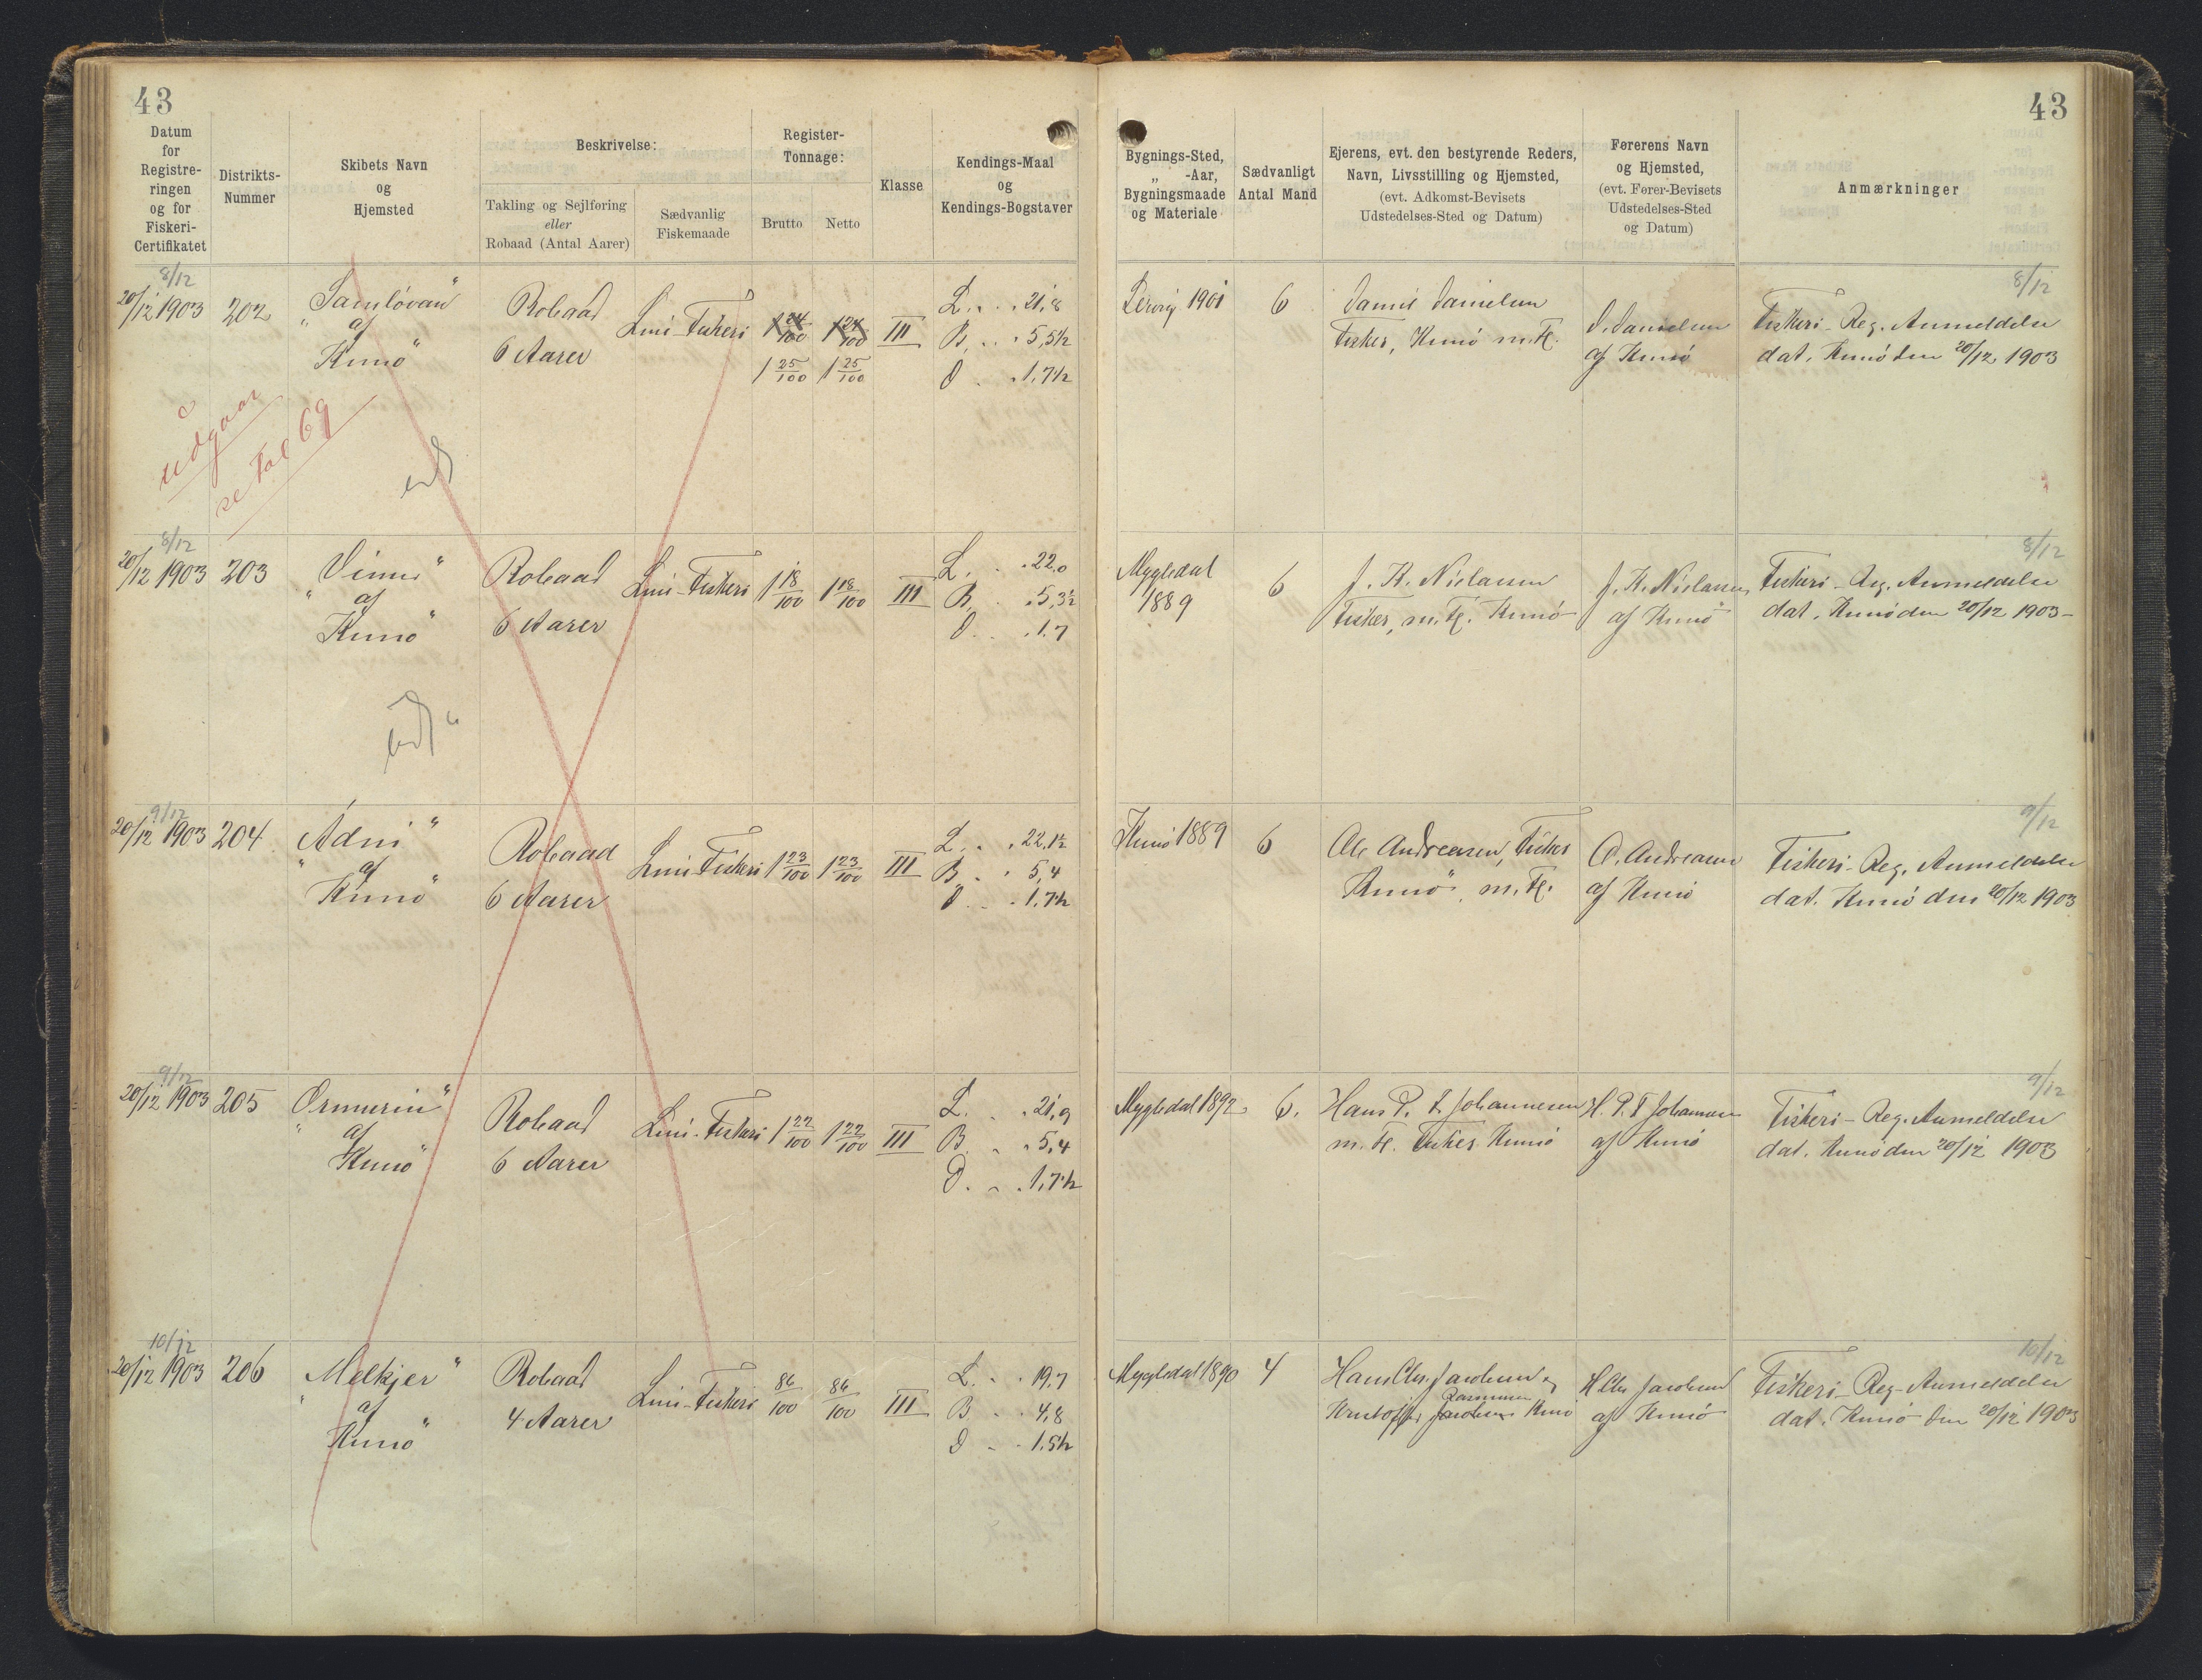 43
43
Datum for Registreringen og for Fiskeri-Certifikatet
Distrikts-Nummer
Skibets Navn og Hjemsted
Beskrivelse:
Takling og Sejlføring eller Robaad (Antal Aarer)
Sædvanlig Fiskemaade
Register-Tonnage:
Brutto
Netto
Klasse
Kendings-Maal og Kendings-Bogstaver
Bygnings-Sted, „ -Aar, Bygningsmaade og Materiale
Sædvanligt Antal Mand
Ejerens, evt. den bestyrende Reders, Navn, Livsstilling og Hjemsted, (evt. Adkomst-Bevisets Udstedelses-Sted og Datum)
Førerens Navn og Hjemsted, (evt. Fører-Bevisets Udstedelses-Sted og Datum)
Anmærkninger
8/12
20/12 1903 202 af Kunø" Robaad 6 Aarer Lini-Fiskeri 1 24/100 1 24/100 III L. 21,8
1 25/100 1 25/100 B. 5,5½
D. 1,7½
Lervig 1901 6 Daniel Danielsen
Fisker, Kunø m. Fl.
D. Danielsen
af Kunø
8/12
Fiskeri-Reg. Anmeldelse
dat. Kunø den 20/12 1903
udgaar
se Fol 69
ud
8/12
20/12 1903 203 af Kunø" Robaad 6 Aarer Lini-Fiskeri 1 18/100 1 18/100 III L. 22,0
B. 5,3½
D. 1,7
Mygledal
1889
6
J. K. Nielasen
Fisker, m. Fl. Kunø
J. K. Nielasen
af Kunø
8/12
Fiskeri-Reg. Anmeldelse
dat. Kunø den 20/12 1903
ud"
9/12
20/12 1903 204 "Adni" af Kunø" Robaad 6 Aarer Lini-Fiskeri 1 23/100 1 23/100 III L. 22,1½
B. 5,4
D. 1,7½
Kunø 1889 6 Ole Andreasen, Fisker
Kunø, m. Fl.
O. Andreasen
af Kunø
9/12
Fiskeri-Reg. Anmeldelse
dat. Kunø den 20/12 1903
9/12
20/12 1903 205 "Ormurin" af Kunø" Robaad 6 Aarer Lini-Fiskeri 1 22/100 1 22/100 III L. 21,9
B. 5,4
D. 1,7½
Mygledal 1892 6. Hans P. F. Johannesen
m. Fl. Fisker Kunø
H. P. F. Johannesen
af Kunø
9/12
Fiskeri-Reg. Anmeldelse
dat. Kunø den 20/12 1903
10/12
20/12 1903 206 "Melkjer" af Kunø" Robaad 4 Aarer Lini-Fiskeri 86/100 86/100 III L. 19,7
B. 4,8
D. 1,5½
Mygledal 1890 4 Hans Chr. Jacobsen og
Rasmussen
Kristoffer Jacobsen Kunø
H Chr Jacobsen
af Kunø
10/12
Fiskeri-Reg-Anmeldelse
dat. Kunø den 20/12 1903